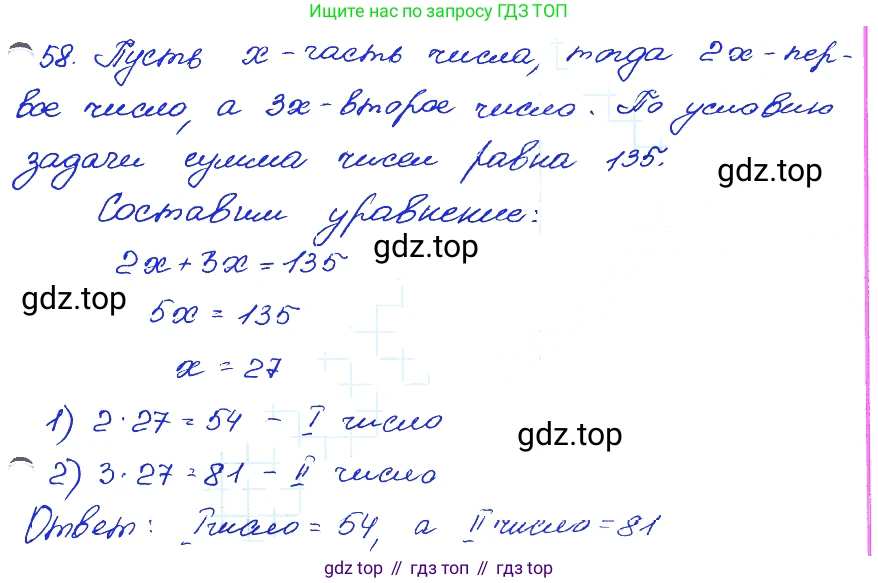 Ищите нас по запросу ГДЗ ТОП
58. Пусть x - часть числа, тогда 2x - пер-
вое число, а 3x - второе число. По условию
задачи сумма чисел равна 135.
gdz.top
Составим уравнение:
gdz.top
2x + 3x = 135
gdz.top
5x = 135
x = 27
1) 2 · 27 = 54 - I число
gdz.top
2) 3 · 27 = 81 - II число
Ответ: I число = 54, а II число = 81
gdz top // гдз топ // гдз top